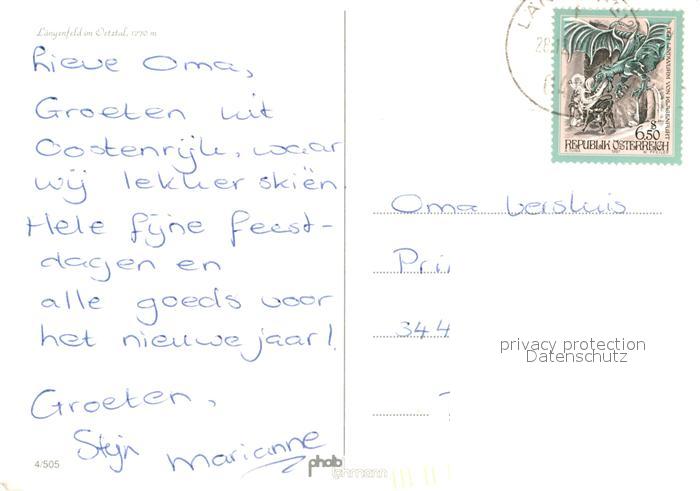 Längenfeld im Oetztal, 1270 m
Lieve Oma,
Groeten uit
Oostenrijk, waar
wij lekker skiën.
Hele fijne feest-
dagen en
alle goeds voor
het nieuwe jaar!
Groeten,
Stijn Marianne
4/505
6.50
REPUBLIK ÖSTERREICH
Oma Versluis
Pri
344
privacy protection
Datenschutz